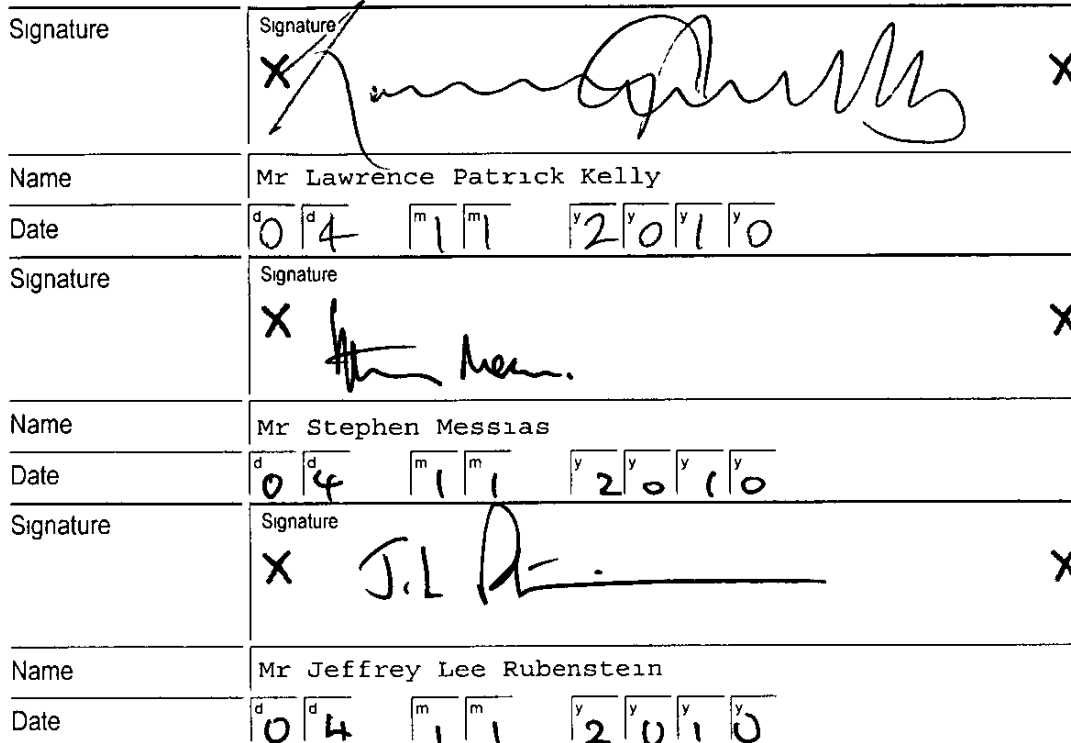 Signature Signature
X X
Name Mr Lawrence Patrick Kelly
Date d0 d4 m1 m1 y2 y0 y1 y0
Signature Signature
X X
Name Mr Stephen Messias
Date d0 d4 m1 m1 y2 y0 y1 y0
Signature Signature
X J.L X
Name Mr Jeffrey Lee Rubenstein
Date d0 d4 m1 m1 y2 y0 y1 y0